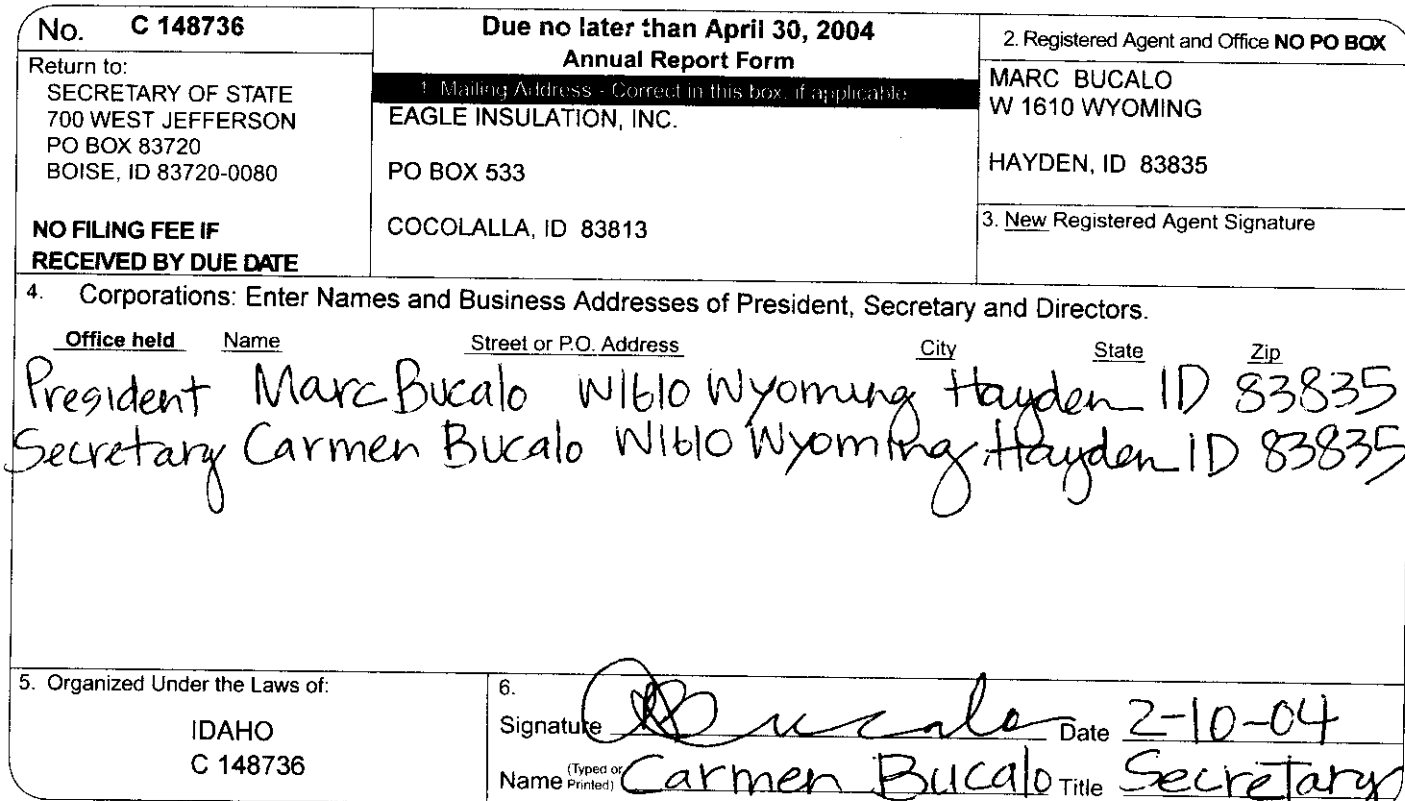 No. C 148736
Return to:
SECRETARY OF STATE
700 WEST JEFFERSON
PO BOX 83720
BOISE, ID 83720-0080
NO FILING FEE IF
RECEIVED BY DUE DATE
Due no later than April 30, 2004
Annual Report Form
1. Mailing Address - Correct in this box, if applicable
EAGLE INSULATION, INC.
PO BOX 533
COCOLALLA, ID 83813
2. Registered Agent and Office NO PO BOX
MARC BUCALO
W 1610 WYOMING
HAYDEN, ID 83835
3. New Registered Agent Signature
4. Corporations: Enter Names and Business Addresses of President, Secretary and Directors.
Office held Name Street or P.O. Address City State Zip
President Marc Bucalo W1610 Wyoming Hayden ID 83835
Secretary Carmen Bucalo W1610 Wyoming Hayden ID 83835
5. Organized Under the Laws of:
IDAHO
C 148736
6.
Signature CBucalo Date 2-10-04
Name (Typed or Printed) Carmen Bucalo Title Secretary